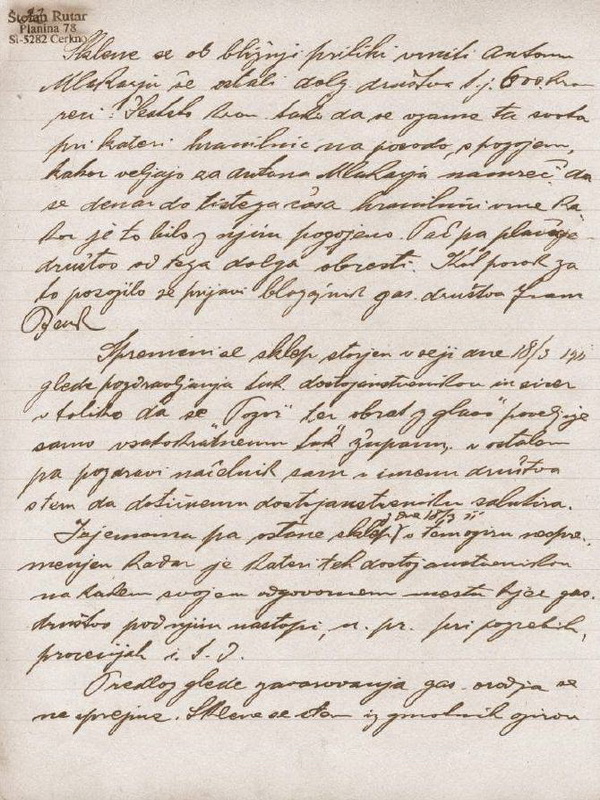 Štefan Rutar
Planina 78
SI-5282 Cerkno
Sklene se ob bližnji priliki vrniti Antonu
Mlakarju še ostali dolg društva t.j. 600 kron
reci: tako da se vzame ta svota
pri kateri hranilnic na posodo, s pogojem,
kakor veljajo za Antona Mlakarja namreč: da
se denar do tistega časa hranilnici vrne ka-
kor je to bilo z njim pogojeno. Tač pa plačuje
društvo od tega dolga obresti. Kot porok za
to posojilo se prijavi blagajnik gas. društva Fran
Benk
Spremeni se sklep storjen v seji dne 18/3
glede pozdravljanja dostojanstvenikov in sicer
v toliko da se "Pozor" ter obrat z glavo" poveljuje
samo vsakokratnemu županu, v ostalem
pa pozdravi načelnik sam v imenu društva
s tem da dotičnemu dostojanstveniku salutira.
Izjemoma pa ostane sklep z dne 18/3 v tem oziru nespre-
menjen kadar je kateri teh dostojanstvenikov
na kakem svojem odgovornem mestu kjer gas.
društvo pod njim nastopi, n. pr. pri pogrebih,
procesijah i. t. d.
Predlog glede zavarovanja gas. orodja se
ne sprejme. Sklene se iz gmotnih ozirov